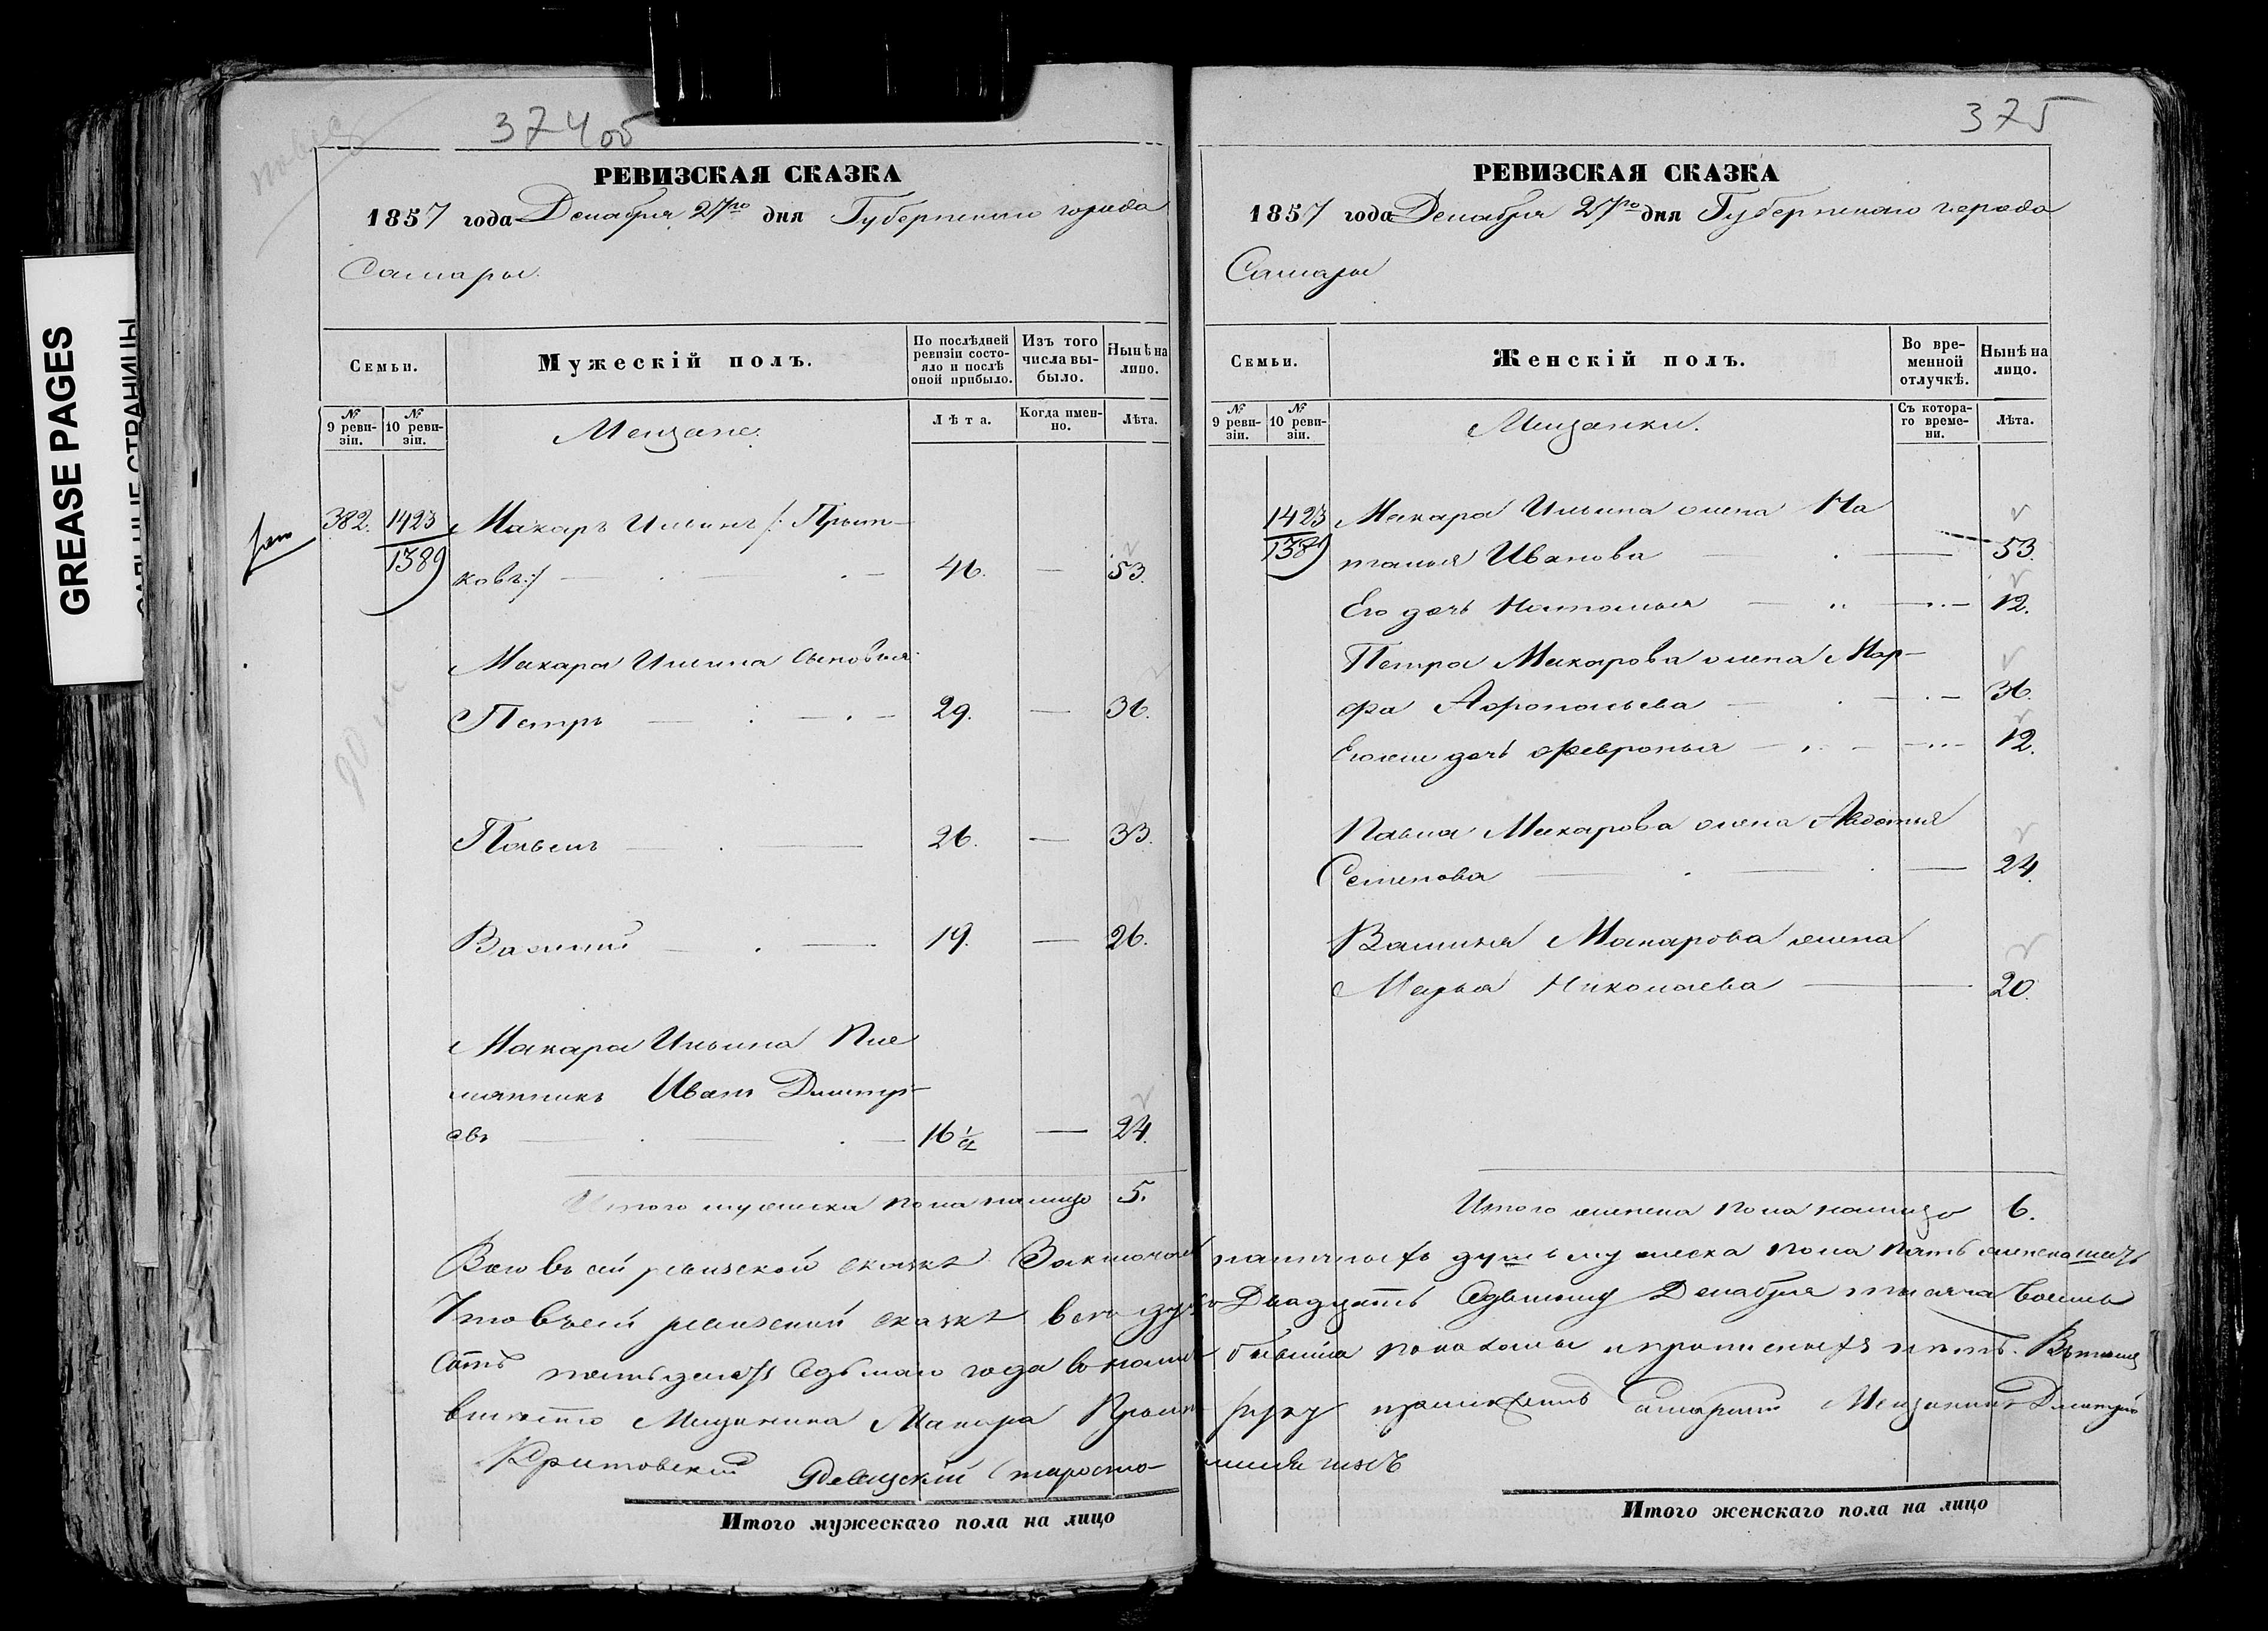 GREASE PAGES
374об
РЕВИЗСКАЯ СКАЗКА
1857 года Декабря 27го дня Губернскаго города
Самары.
Семьи.
Мужескій полъ.
По послѣдней ревизіи состояло и послѣ оной прибыло.
Изъ того числа выбыло.
Нынѣ на лицо.
№ 9 ревизіи.
№ 10 ревизіи.
Мещане.
Лѣта.
Когда именно.
Лѣта.
382. 1423 Макаръ Ильинъ /: Прыт-
1389 ковъ:/ 46. — 53.
Макара Ильина сыновья
Петръ 29. — 36.
Павелъ 26. — 33.
Василій 19. — 26.
Макара Ильина Пле
мянникъ Иванъ Дмитрі-
евъ 16 1/2 — 24.
Итого мужеска пола налицо 5.
375
РЕВИЗСКАЯ СКАЗКА
1857 года Декабря 27го дня Губернскаго города
Самары
Семьи.
Женскій полъ.
Во временной отлучкѣ.
Нынѣ на лицо.
№ 9 ревизіи.
№ 10 ревизіи.
Мещанки.
Съ котораго времени.
Лѣта.
1423 Макара Ильина жена На
1389 талья Иванова 53.
Его дочь Наталья 12.
Петра Макарова жена Мар-
фа 36.
Его же дочь Февронья 12.
Павла Макарова жена Авдотья
Семенова 24.
Василья Макарова жена
Марья Николаева 20.
Итого женска пола налицо 6.
Всего въ сей ревизской сказкѣ Заключается наличныхъ душъ мужеска пола пять женска шесть
Что въ сей ревизской сказкѣ всѣ души по Двадцать Седьмому Декабря тысяча восемь
сотъ пятьдесятъ Седьмаго года показаны и прописныхъ нѣтъ. Въ томъ
вмѣсто Мещанина Макара руку приложилъ Мещанинъ Дмитрій
Ревизскій староста
Итого мужескаго пола на лицо
Итого женскаго пола на лицо